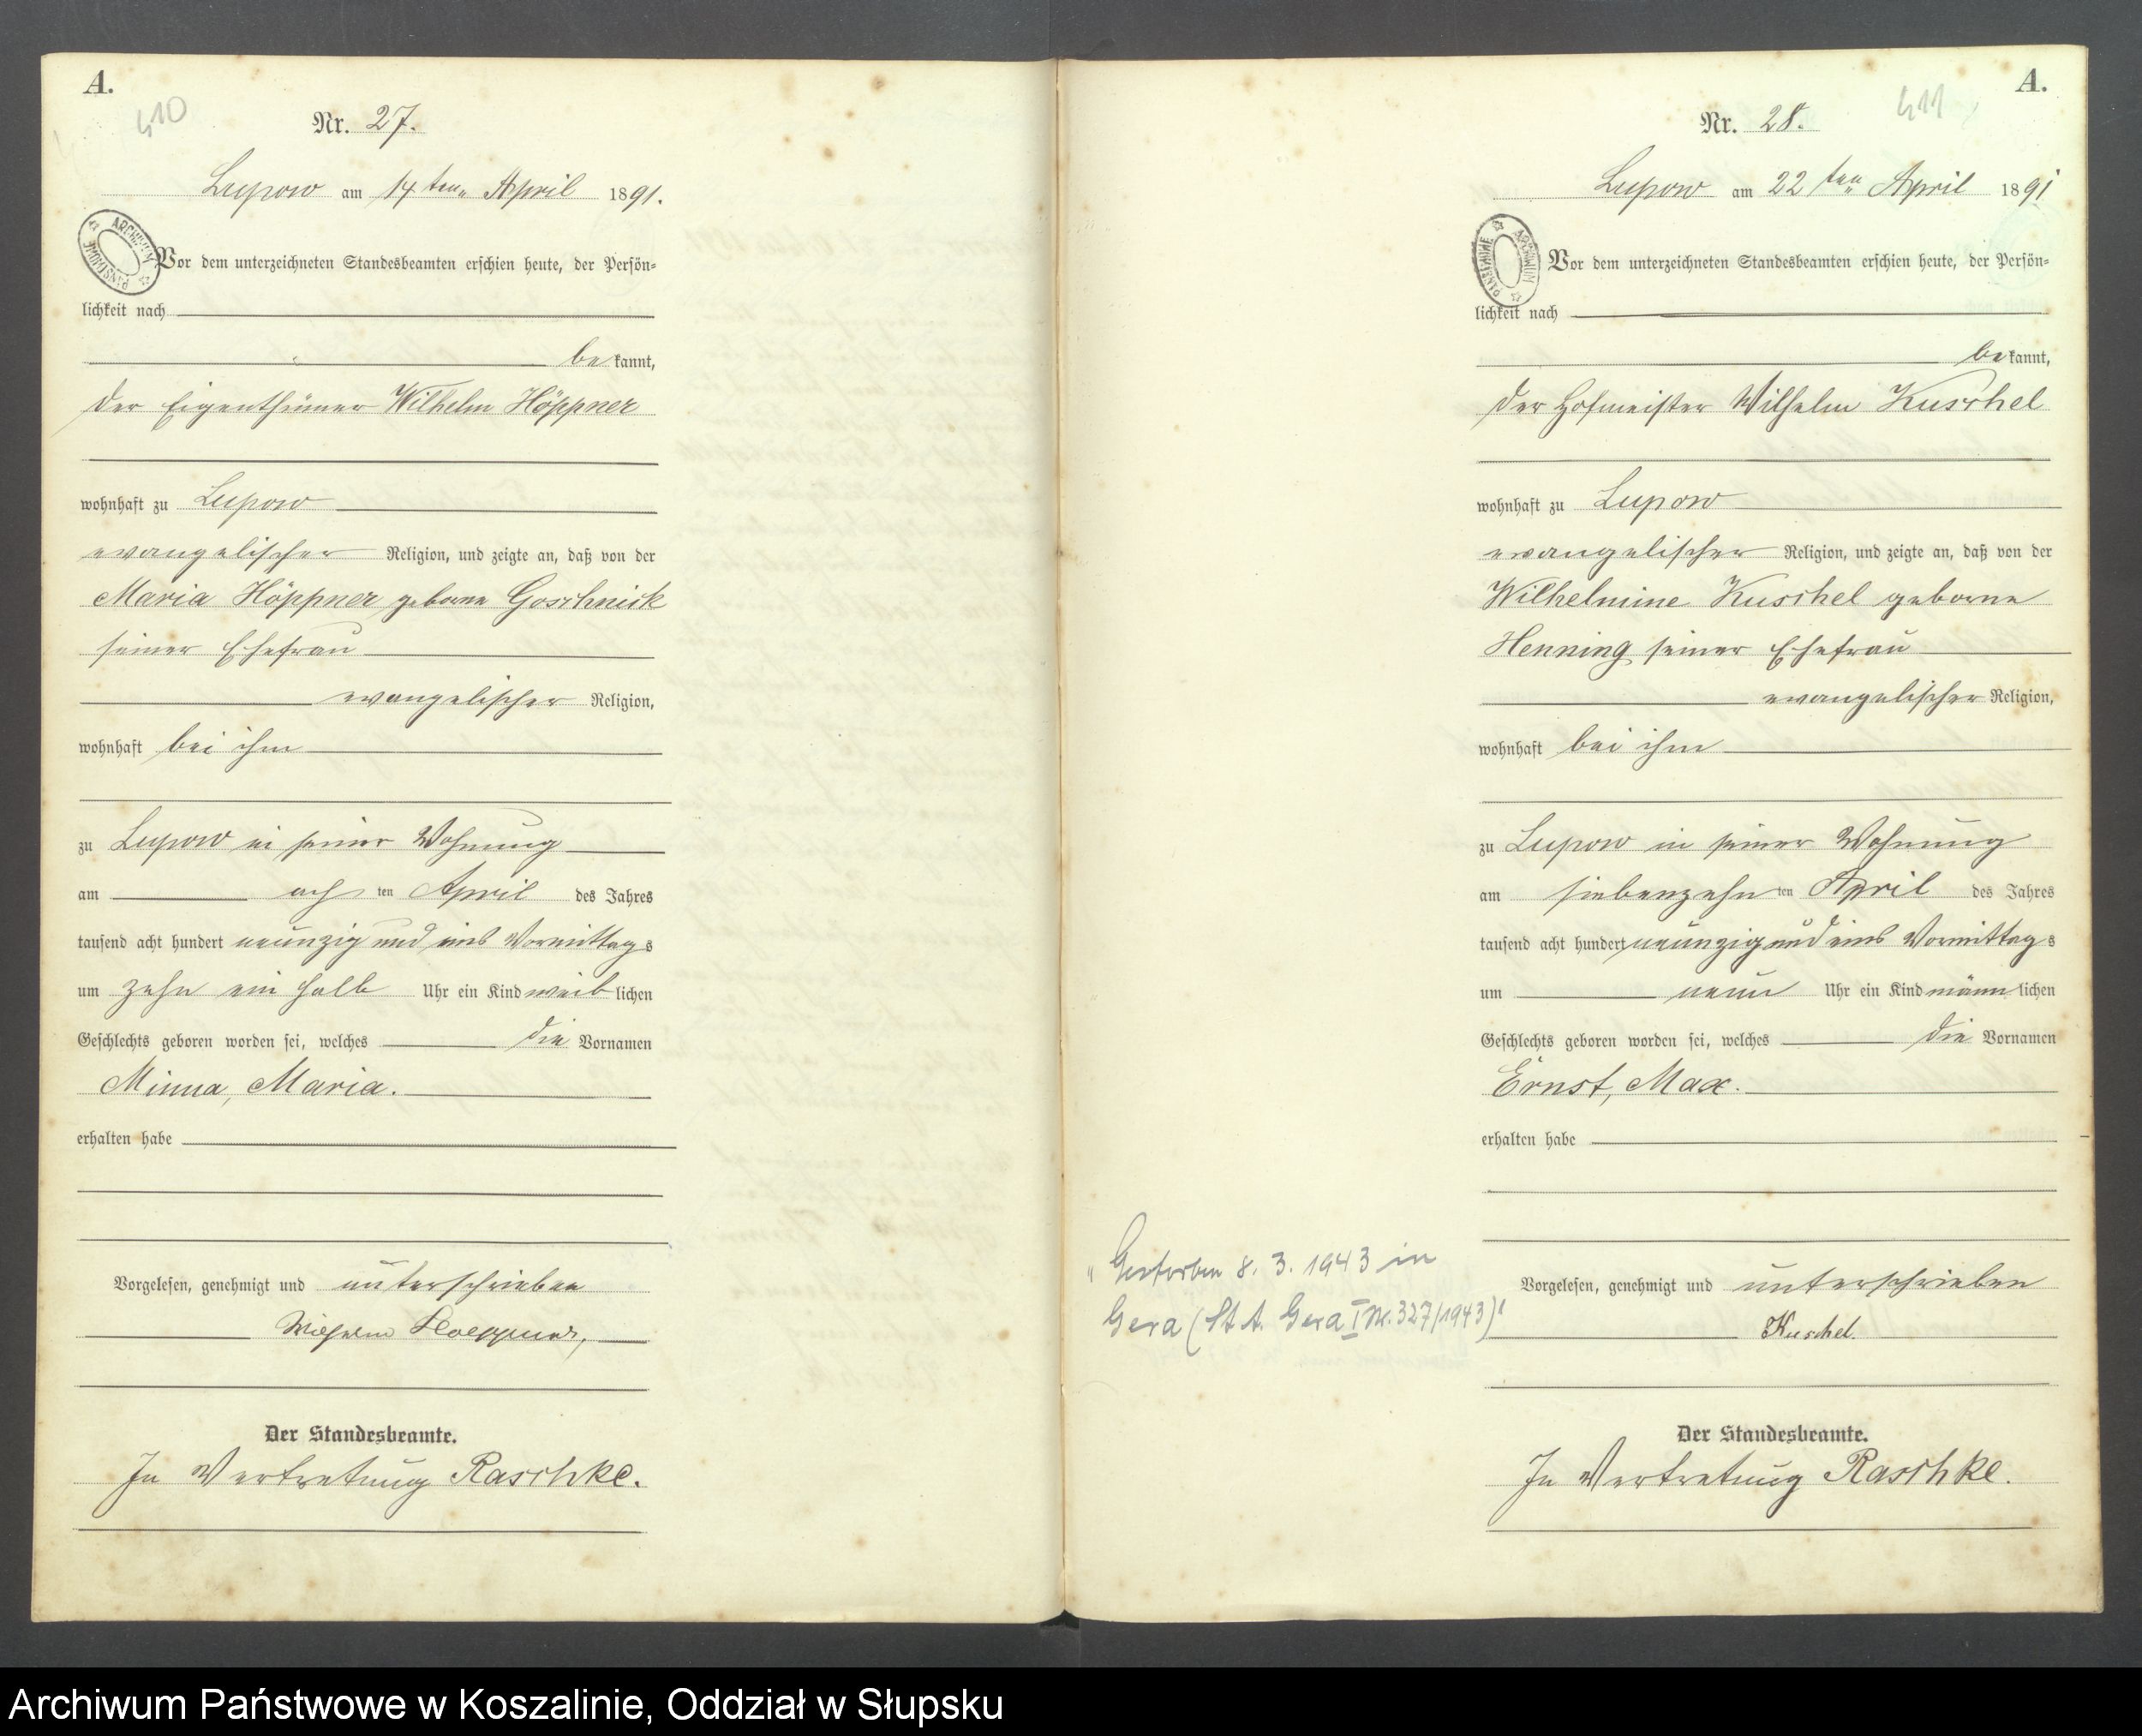 A.
410
Nr. 27.
Lupow am 14ten April 1891.
Vor dem unterzeichneten Standesbeamten erschien heute, der Persön=
lichkeit nach
bekannt,
der Eigenthümer Wilhelm Höppner
wohnhaft zu Lupow
evangelischer Religion, und zeigte an, daß von der
Maria Höppner geborne Goschnick
seiner Ehefrau
evangelischer Religion,
wohnhaft bei ihm
zu Lupow in seiner Wohnung
am achten April des Jahres
tausend acht hundert neunzig und eins Vormittags
um zehn ein halb Uhr ein Kind weiblichen
Geschlechts geboren worden sei, welches die Vornamen
Minna, Maria.
erhalten habe
Vorgelesen, genehmigt und unterschrieben
Wilhelm Hoeppner,
Der Standesbeamte.
In Vertretung Raschke.
ARCHIWUM PAŃSTWOWE
A.
411
Nr. 28.
Lupow am 22ten April 1891
Vor dem unterzeichneten Standesbeamten erschien heute, der Persön=
lichkeit nach
bekannt,
der Hofmeister Wilhelm Kuschel
wohnhaft zu Lupow
evangelischer Religion, und zeigte an, daß von der
Wilhelmine Kuschel geborne
Henning seiner Ehefrau
evangelischer Religion,
wohnhaft bei ihm
zu Lupow in seiner Wohnung
am siebenzehnten April des Jahres
tausend acht hundert neunzig und eins Vormittags
um neun Uhr ein Kind männlichen
Geschlechts geboren worden sei, welches die Vornamen
Ernst, Max.
erhalten habe
Vorgelesen, genehmigt und unterschrieben
Kuschel.
Der Standesbeamte.
In Vertretung Raschke.
ARCHIWUM PAŃSTWOWE
"Gestorben 8. 3. 1943 in
Gera (St. A. Gera I Nr. 327/1943)"
Archiwum Państwowe w Koszalinie, Oddział w Słupsku